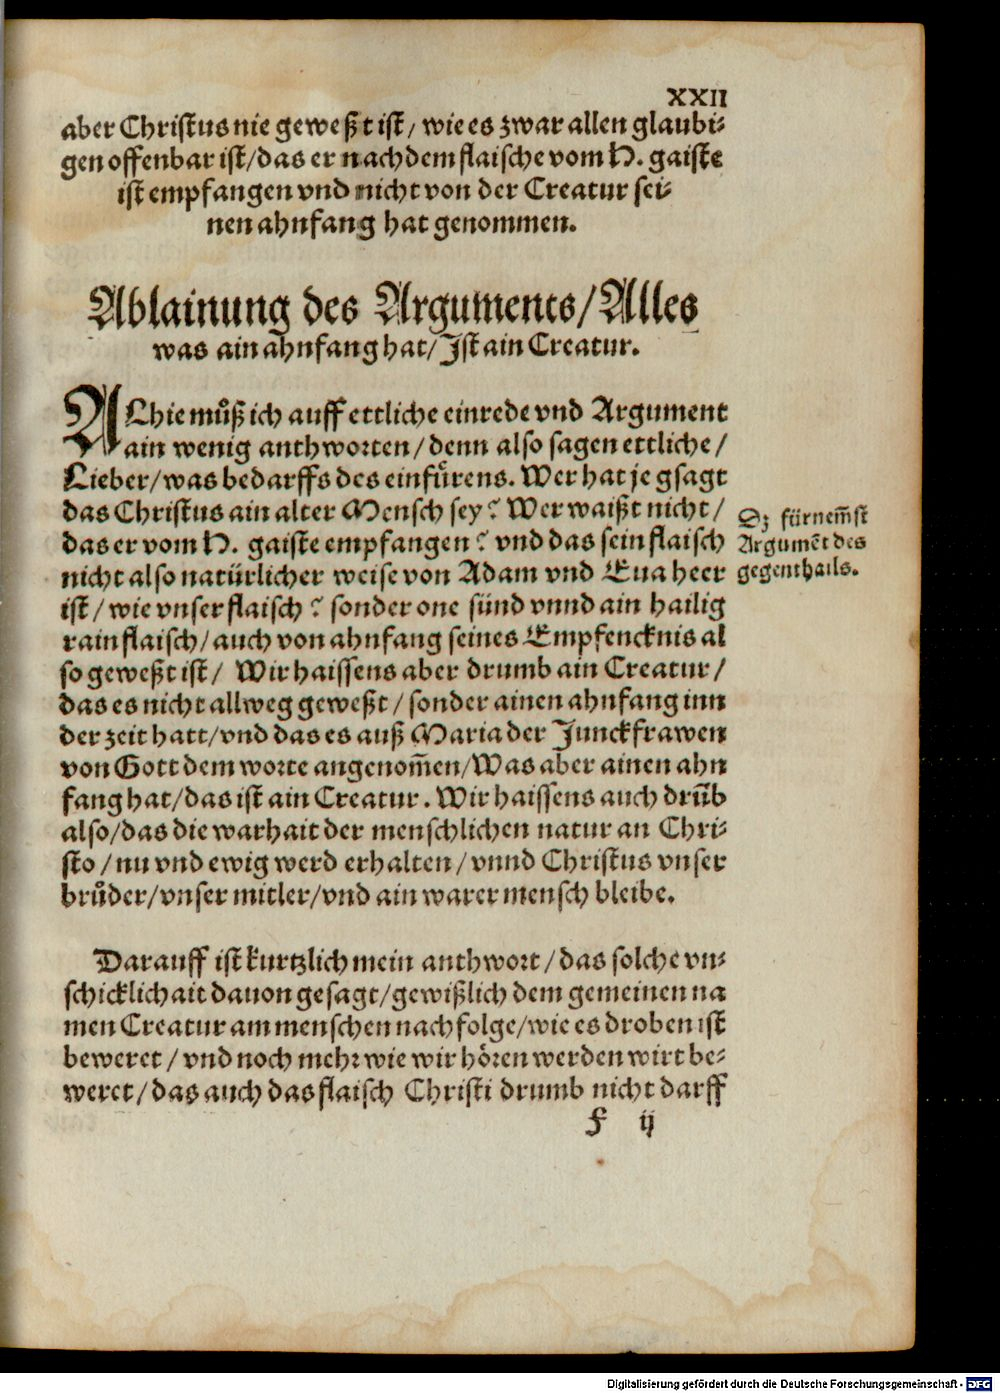 XXII
aber Christus nie geweßt ist / wie es zwar allen glaubi⸗
gen offenbar ist/das er nach dem flaische vom H. gaiste
ist empfangen vnd nicht von der Creatur sei⸗
nen ahnfang hat genommen.
Ablainung des Arguments/Alles
was ain ahnfang hat/Ist ain Creatur.
ALhie můß ich auff ettliche einrede vnd Argument
ain wenig anthworten/denn also sagen ettliche/
Lieber/was bedarffs des einfůrens. Wer hat je gsagt
das Christus ain alter Mensch sey? Wer waißt nicht/
das er vom H. gaiste empfangen? vnd das sein flaisch
nicht also natürlicher weise von Adam vnd Eua heer
ist/wie vnser flaisch? sonder one sünd vnnd ain hailig
rain flaisch/auch von ahnfang seines Empfencknis al
so geweßt ist/ Wir haissens aber drumb ain Creatur/
das es nicht allweg geweßt/sonder ainen ahnfang inn
der zeit hatt/vnd das es auß Maria der Junckfrawen
von Gott dem worte angenom̄en/Was aber ainen ahn
fang hat/das ist ain Creatur. Wir haissens auch drūb
also/das die warhait der menschlichen natur an Chri⸗
sto/nu vnd ewig werd erhalten/vnnd Christus vnser
brůder/vnser mitler/vnd ain warer mensch bleibe.
Dz fürnem̄st
Argumēt des
gegenthails.
Darauff ist kurtzlich mein anthwort/das solche vn⸗
schicklichait dauon gesagt/gewißlich dem gemeinen na
men Creatur am menschen nachfolge/wie es droben ist
beweret/vnd noch mehr wie wir hören werden wirt be⸗
weret/das auch das flaisch Christi drumb nicht darff
F ij
Digitalisierung gefördert durch die Deutsche Forschungsgemeinschaft - DFG